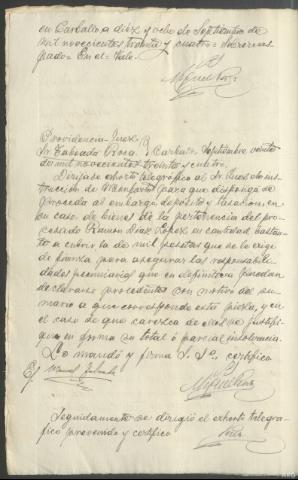 en Carballo a diez y ocho de Septiembre de
mil novecientos treinta y cuatro=
=En el= Vale.
Providencia Juez
Sr. Taboada Roca. Carballo Septiembre veinte
de mil novecientos treinta y cuatro.
Dirijase exhorto telegráfico al Sr. Juez de ins-
trucción de Monforte para que disponga se
proceda al embargo, depósito y tasación, en
su caso de bienes de la pertenencia del pro-
cesado Ramon Diaz Lopez en cantidad bastan-
te a cubrir la de mil pesetas que se le exige
de fianza para asegurar las responsabili-
dades pecuniarias que en definitiva puedan
declararse procedentes con motivo del su-
mario a que corresponde esta pieza, y en
el caso de que carezca de ellos se justifi-
que en forma su total ó parcial insolvencia.
Lo mandó y firma S. Sª, certifico
Seguidamente se dirigió el exhorto telegra-
fico prevenido y certifico